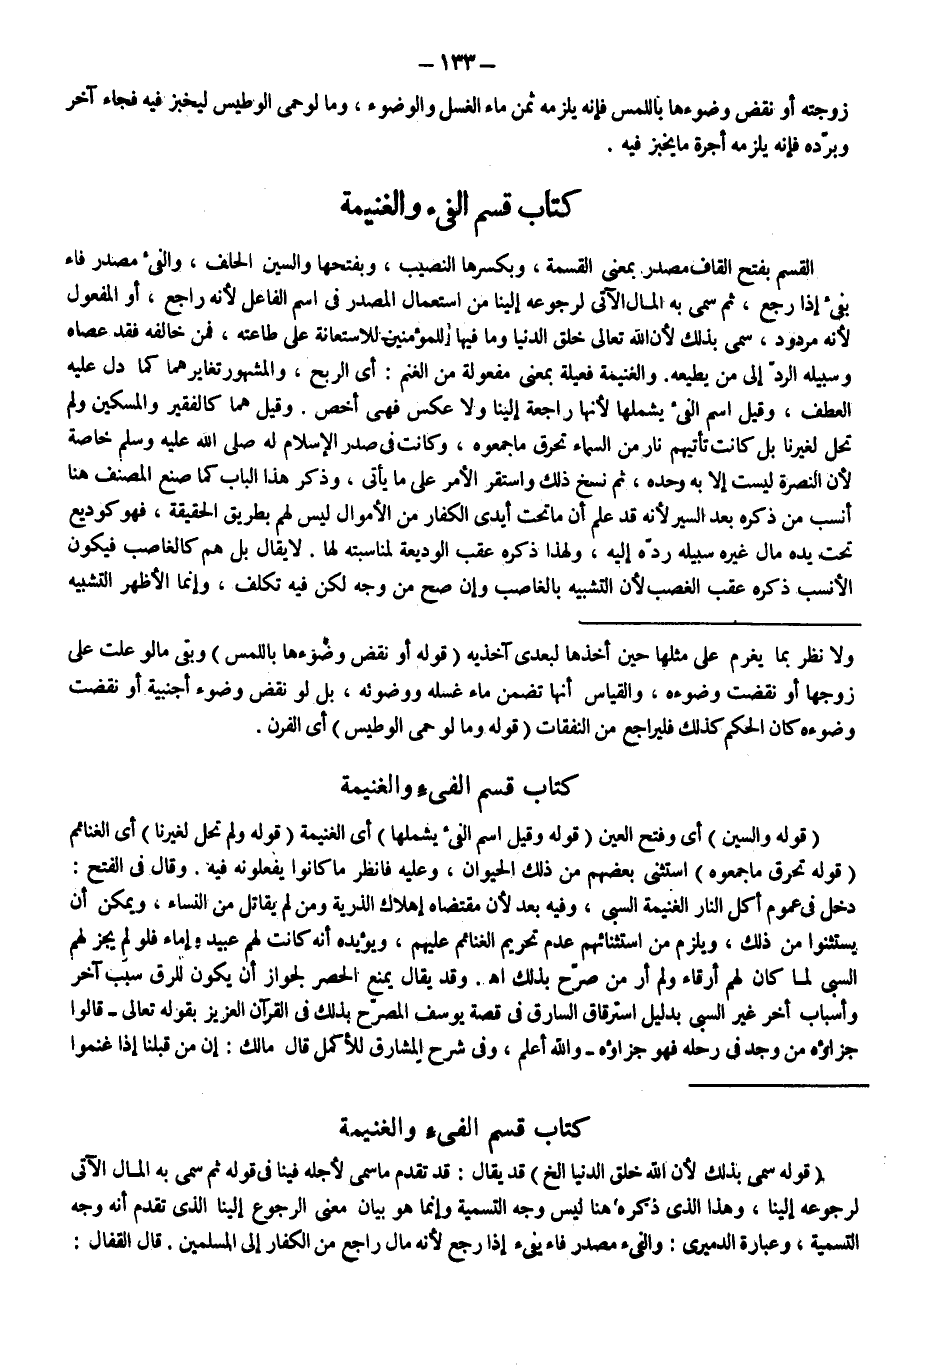 – ١٣٣ –
زوجته أو نقض وضوءها باللمس فإنه يلزمه ثمن ماء الغسل والوضوء ، وما لوحمى الوطيس ليخبز فيه فجاء آخر
وبرّده فإنه يلزمه أجرة مايخبز فيه .
كتاب قسم الفىء والغنيمة
القسم بفتح القاف مصدر بمعنى القسمة ، وبكسرها النصيب ، وبفتحها والسين الحلف ، والفىء مصدر فاء
يفىء إذا رجع ، ثم سمى به المـال الآتى لرجوعه إلينا من استعمال المصدر فى اسم الفاعل لأنه راجع ، أو المفعول
لأنه مردود ، سمى بذلك لأن الله تعالى خلق الدنيا وما فيها للمؤمنين للاستعانة على طاعته ، فمن خالفه فقد عصاه
وسبيله الردّ إلى من يطيعه. والغنيمة فعيلة بمعنى مفعولة من الغنم : أى الربح ، والمشهور تغايرهما كما دل عليه
العطف ، وقيل اسم الفىء يشملها لأنها راجعة إلينا ولا عكس فهى أخص . وقيل هما كالفقير والمسكين ولم
تحل لغيرنا بل كانت تأتيهم نار من السماء تحرق ماجمعوه ، وكانت فى صدر الإسلام له صلى الله عليه وسلم خاصة
لأن النصرة ليست إلا به وحده ، ثم نسخ ذلك واستقر الأمر على ما يأتى ، وذكر هذا الباب كما صنع المصنف هنا
أنسب من ذكره بعد السير لأنه قد علم أن ماتحت أيدى الكفار من الأموال ليس لهم بطريق الحقيقة ، فهو كوديع
تحت يده مال غيره سبيله ردّه إليه ، ولهذا ذكره عقب الوديعة لمناسبته لها . لايقال بل هم كالغاصب فيكون
الأنسب ذكره عقب الغصب لأن التشبيه بالغاصب وإن صح من وجه لكن فيه تكلف ، وإنما الأظهر التشبيه
ولا نظر بما يغرم على مثلها حين أخذها لبعدى آخذيه ( قوله أو نقض وضوءها باللمس ) وبقى مالو علت على
زوجها أو نقضت وضوءه ، والقياس أنها تضمن ماء غسله ووضوئه ، بل لو نقض وضوء أجنبية أو نقضت
وضوءه كان الحكم كذلك فليراجع من النفقات ( قوله وما لو حمى الوطيس ) أى الفرن .
كتاب قسم الفىء والغنيمة
( قوله والسين ) أى وفتح العين ( قوله وقيل اسم الفىء يشملها ) أى الغنيمة ( قوله ولم تحل لغيرنا ) أى الغنائم
( قوله تحرق ماجمعوه ) استثنى بعضهم من ذلك الحيوان ، وعليه فانظر ما كانوا يفعلونه فيه . وقال فى الفتح :
دخل فى عموم أكل النار الغنيمة السبى ، وفيه بعد لأن مقتضاه إهلاك الذرية ومن لم يقاتل من النساء ، ويمكن أن
يستثنوا من ذلك ، ويلزم من استثنائهم عدم تحريم الغنائم عليهم ، ويؤيده أنه كانت لهم عبيد وإماء فلو لم يجز لهم
السبى لمـا كان لهم أرقاء ولم أر من صرّح بذلك اهـ . وقد يقال بمنع الحصر لجواز أن يكون للرق سبب آخر
وأسباب أخر غير السبى بدليل استرقاق السارق فى قصة يوسف المصرّح بذلك فى القرآن العزيز بقوله تعالى ــ قالوا
جزاؤه من وجد فى رحله فهو جزاؤه ــ والله أعلم ، وفى شرح المشارق للأكمل قال مالك : إن من قبلنا إذا غنموا
كتاب قسم الفىء والغنيمة
( قوله سمى بذلك لأن الله خلق الدنيا الخ ) قد يقال : قد تقدم ماسمى لأجله فينا فى قوله ثم سمى به المـال الآتى
لرجوعه إلينا ، وهذا الذى ذكره هنا ليس وجه التسمية وإنما هو بيان معنى الرجوع إلينا الذى تقدم أنه وجه
التسمية ، وعبارة الدميرى : والفىء مصدر فاء يفىء إذا رجع لأنه مال راجع من الكفار إلى المسلمين . قال القفال :